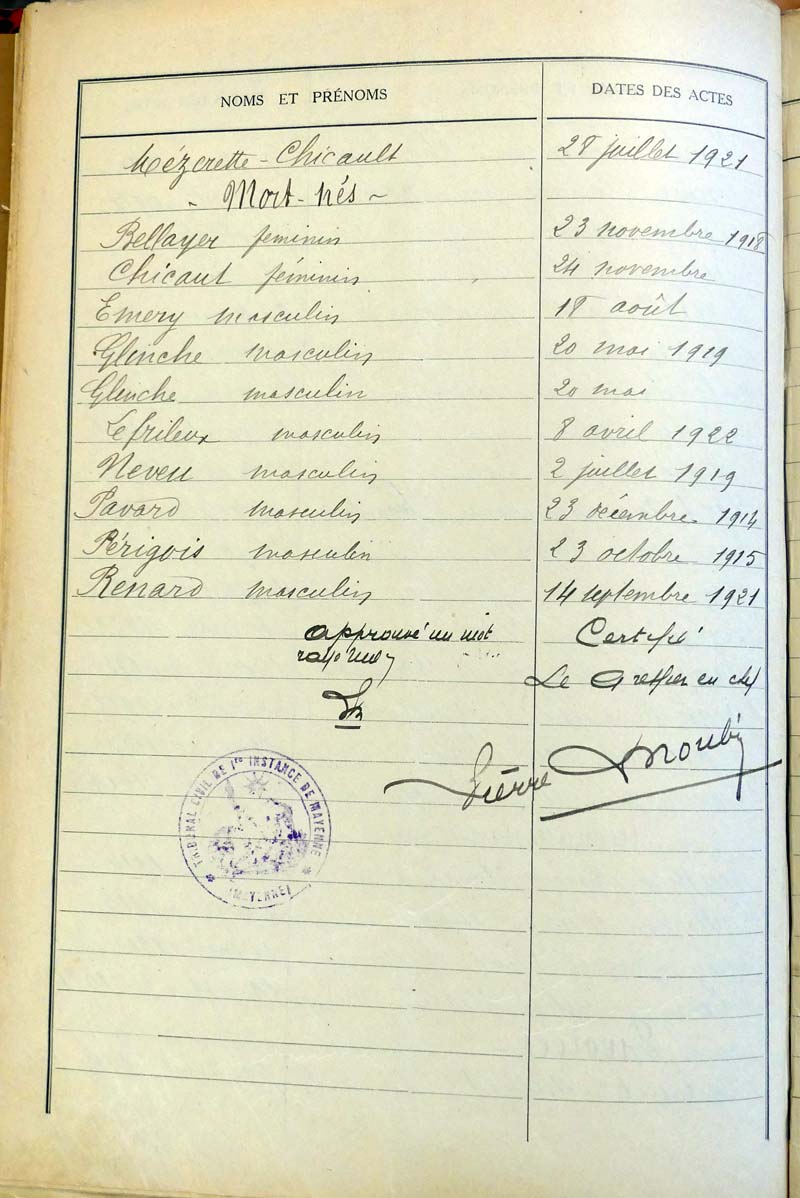 NOMS ET PRÉNOMS DATES DES ACTES
Mézerette-Chicault 28 juillet 1921
- Mort-nés -
Bellayer feminin 23 novembre 1918
Chicaut féminin 24 novembre
Emery masculin 18 août
Glinche masculin 20 mai 1919
Glinche masculin 20 mai
Lefrileux masculin 8 avril 1922
Neveu masculin 2 juillet 1919
Pavard masculin 23 décembre 1914
Périgois masculin 23 octobre 1915
Renard masculin 14 septembre 1921
approuvé un mot Certifié
rayé nul Le Greffier en chef
Pierre
TRIBUNAL CIVIL DE 1re INSTANCE DE MAYENNE
(MAYENNE)